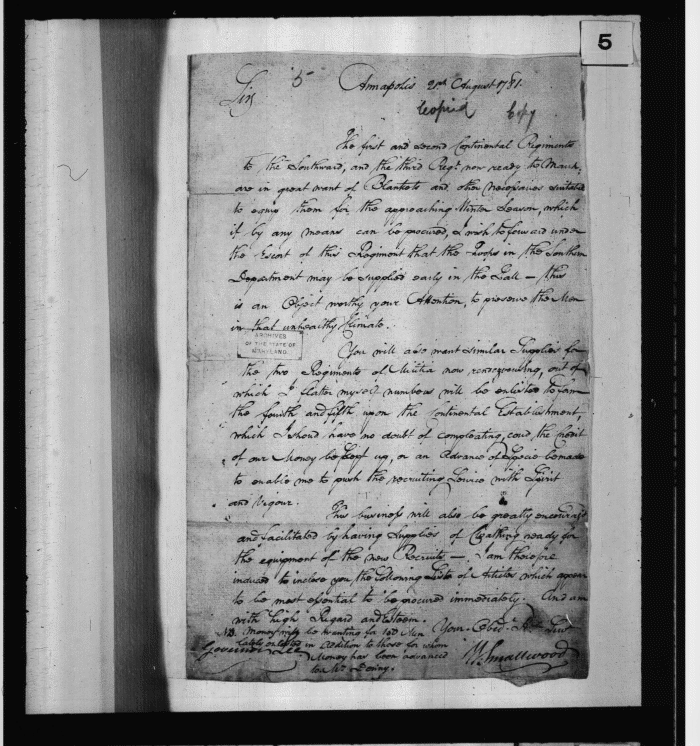 5
5
Annapolis 21st August 1781.
Sir
Copied Copy
The first and second Continental Regiments
to the Southward, and the third Regt. now ready to March,
are in great want of Blankets and other Necessaries suitable
to equip them for the approaching Winter Season, which
if by any means can be procured, I wish to forward under
the Escort of this Regiment that the Troops in the Southern
Department may be supplied early in the Fall — this
is an Object worthy your Attention, to preserve the Men
in that unhealthy Climate.
ARCHIVES
OF THE STATE OF
MARYLAND
You will also want similar Supplies for
the two Regiments of Militia now rendezvousing, out of
which I flatter myself numbers will be enlisted to form
the fourth and fifth upon the Continental Establishment,
which I should have no doubt of compleating, could the Credit
of our Money be kept up, or an Advance of Specie be made
to enable me to push the recruiting Service with Spirit
and Vigour.
This business will also be greatly encouraged
and facilitated by having Supplies of Cloathing ready for
the equipment of the new Recruits — I am therefore
induced to inclose you the following Lists of Articles which appear
to be most essential to be procured immediately. And am
with high Regard and Esteem.
NB. Money will be wanting for Men Your Obed.
lately enlisted in Addition to those for whom
Governor Lee
Money has been advanced W Smallwood
to Mr.